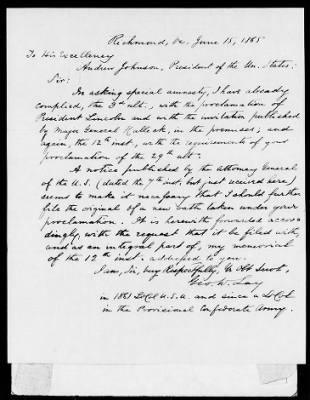 Richmond, Va. June 15, 1865
To His Excellency
Andrew Johnson, President of the Un. States:
Sir:
In asking special amnesty, I have already
complied, the 3d ult., with the proclamation of
President Lincoln and with the invitation published
by Major General Halleck, in the premises; and
again, the 12th inst., with the requirements of your
proclamation of the 29th ult.
A notice published by the Attorney General
of the U.S. (dated the 7th inst., but just received here)
seems to make it necessary that I should further
file the original of a new oath taken under your
proclamation. It is herewith forwarded accor-
dingly, with the request that it be filed with,
and as an integral part of, my memorial
of the 12th inst. addressed to you.
I am, Sir, very Respectfully, Yr Obt Servt,
Geo. W. Lay
in 1861 Lt Col U.S.A. and since a Lt Col
in the Provisional Confederate Army.